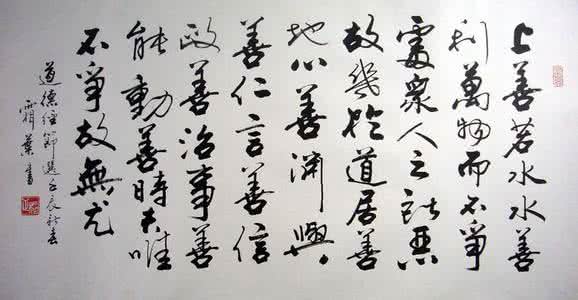 上善若水水善
利萬物而不爭
處衆人之所惡
故幾於道居善
地心善淵與
善仁言善信
政善治事善
能動善時夫唯
不爭故無尤
道德經節選